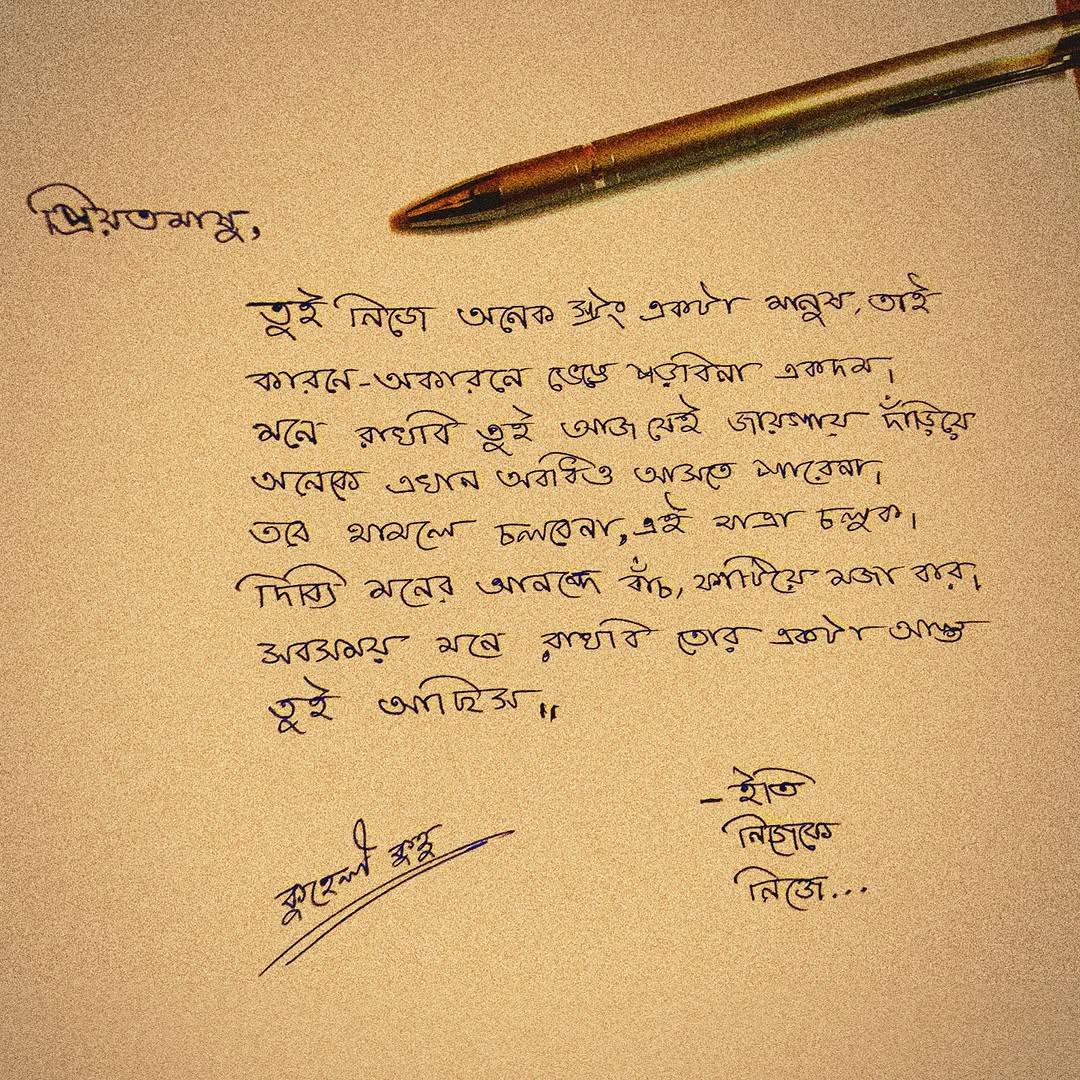 প্রিয়তমাষু,
তুই নিজে অনেক স্ট্রং একটা মানুষ, তাই
কারনে-অকারনে ভেঙে পড়বিনা একদম।
মনে রাখবি তুই আজ যেই জায়গায় দাঁড়িয়ে
অনেকে এখান অবধিও আসতে পারেনা।
তবে থামলে চলবেনা, এই যাত্রা চলুক।
দিব্যি মনের আনন্দে বাঁচ, ফাটিয়ে মজা কর।
সবসময় মনে রাখবি তোর একটা আস্ত
তুই আছিস॥
- ইতি
নিজেকে
নিজে...
কুহেলী কুন্ডু